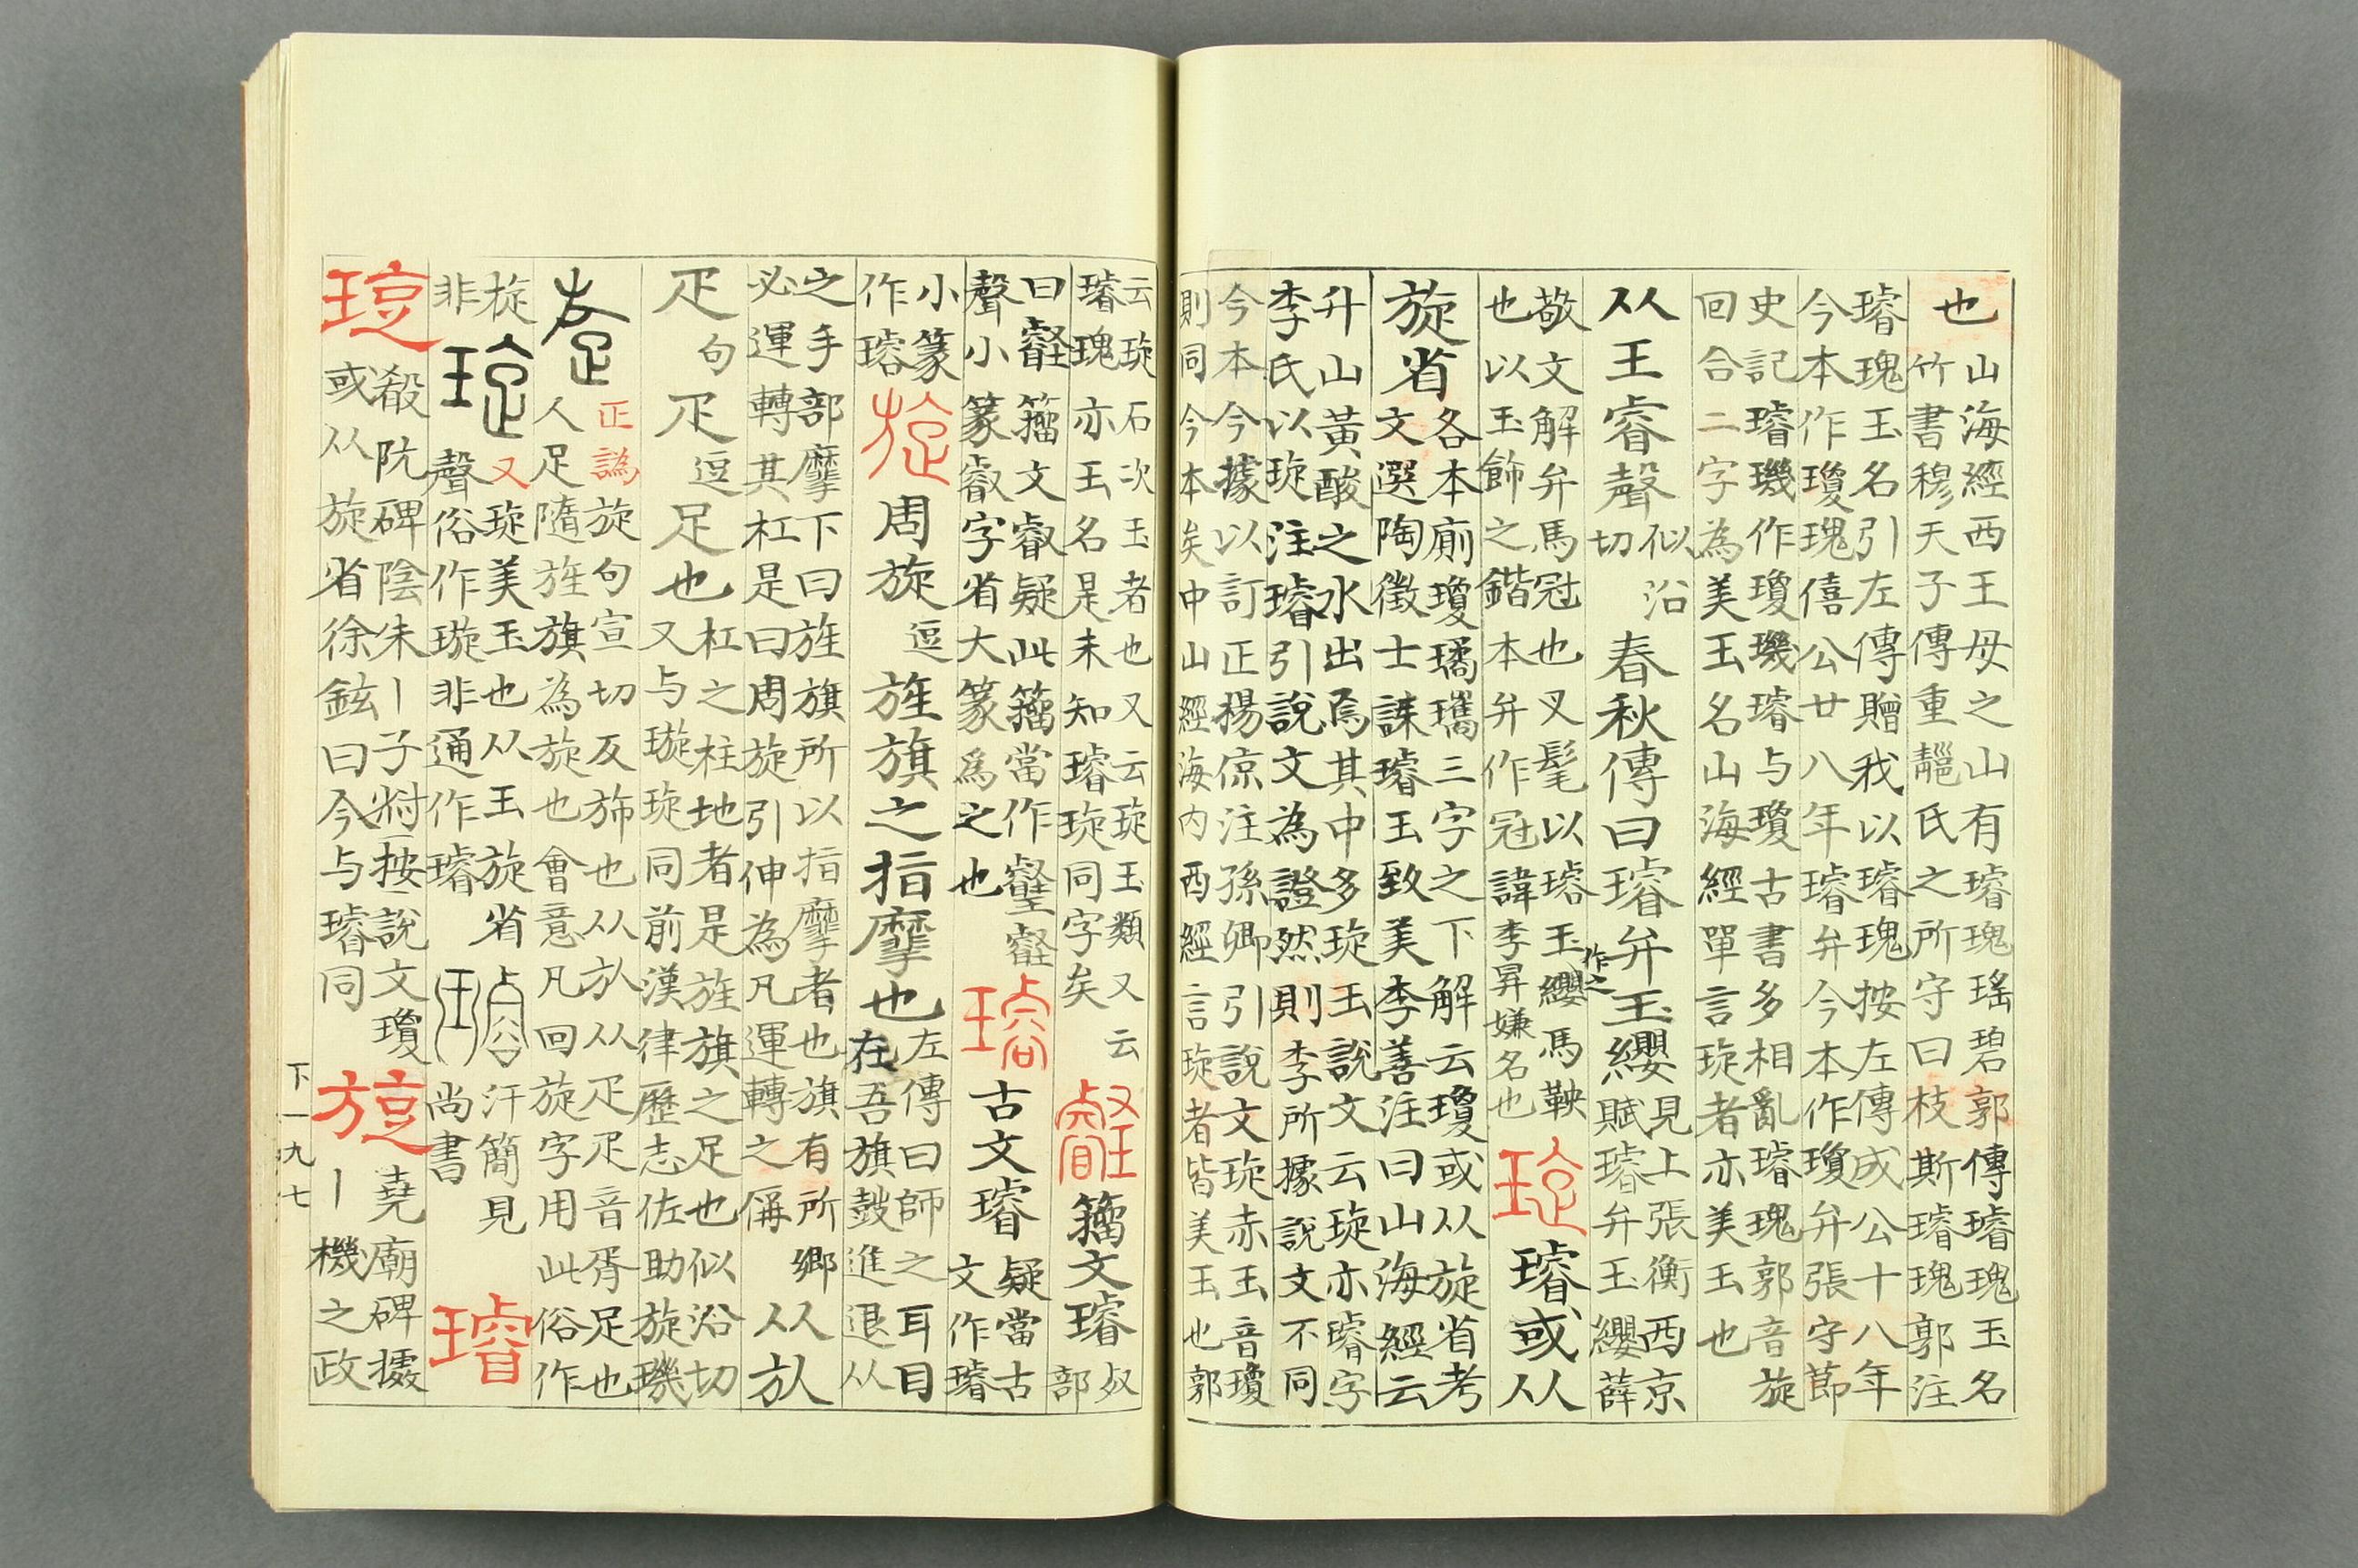 也
山海經西王母之山有璿瑰瑤碧郭傳璿瑰玉名
竹書穆天子傳重䣍氏之所守曰枝斯璿瑰郭注
璿瑰玉名引左傳贈我以璿瑰按左傳成公十八年
今本作瓊瑰僖公廿八年璿弁今本作瓊弁張守節
史記璿璣作瓊璣璿与瓊古書多相亂璿瑰郭音旋
回合二字為美玉名山海經單言琁者亦美玉也
从王睿聲
似沿
切
春秋傳曰璿弁玉纓
見上張衡西京
賦璿弁玉纓薛
敬文解弁馬冠也叉髦以璿玉
作之
纓馬鞅
也以玉飾之鍇本弁作冠諱李昇嫌名也
琁
璿或从
旋省
各本廁瓊璚瓗三字之下解云瓊或从旋省考
文選陶徵士誄璿玉致美李善注曰山海經云
升山黃酸之水出焉其中多琁玉說文云琁亦璿字
李氏以琁注璿引說文為證然則李所據說文不同
今本今據以訂正楊倞注孫卿引說文琁赤玉音瓊
則同今本矣中山經海內西經言琁者皆美玉也郭
云琁石次玉者也又云琁玉類又云
璿瑰亦玉名是未知璿琁同字矣
叡
籀文璿
𣦼
部
曰叡籀文叡疑此籀當作壡叡
聲小篆叡字省大篆為之也
璿
古文璿
疑當古
文作璿
小篆
作璿
旋
周旋
逗
旌旗之指麾也
左傳曰師之耳目
在吾旗鼓進退从
之手部麾下曰旌旗所以指麾者也旗有所鄉
必運轉其杠是曰周旋引伸為凡運轉之偁
从㫃
疋
句
疋
逗
足也
杠之柱地者是旌旗之足也似沿切
又与璇琁同前漢律歷志佐助旋璣
旋
正譌
旋句宣切反斾也从㫃从疋疋音胥足也
人足隨旌旗為旋也會意凡回旋字用此俗作
旋
非
琁
又琁美玉也从玉旋省
聲俗作璇非通作璿
璿
汗簡見
尚書
璿
琁
殽阬碑陰朱丨子
按說文瓊
或从旋省徐鉉曰今与璿同
旋
堯廟碑據
丨機之政
下一九七